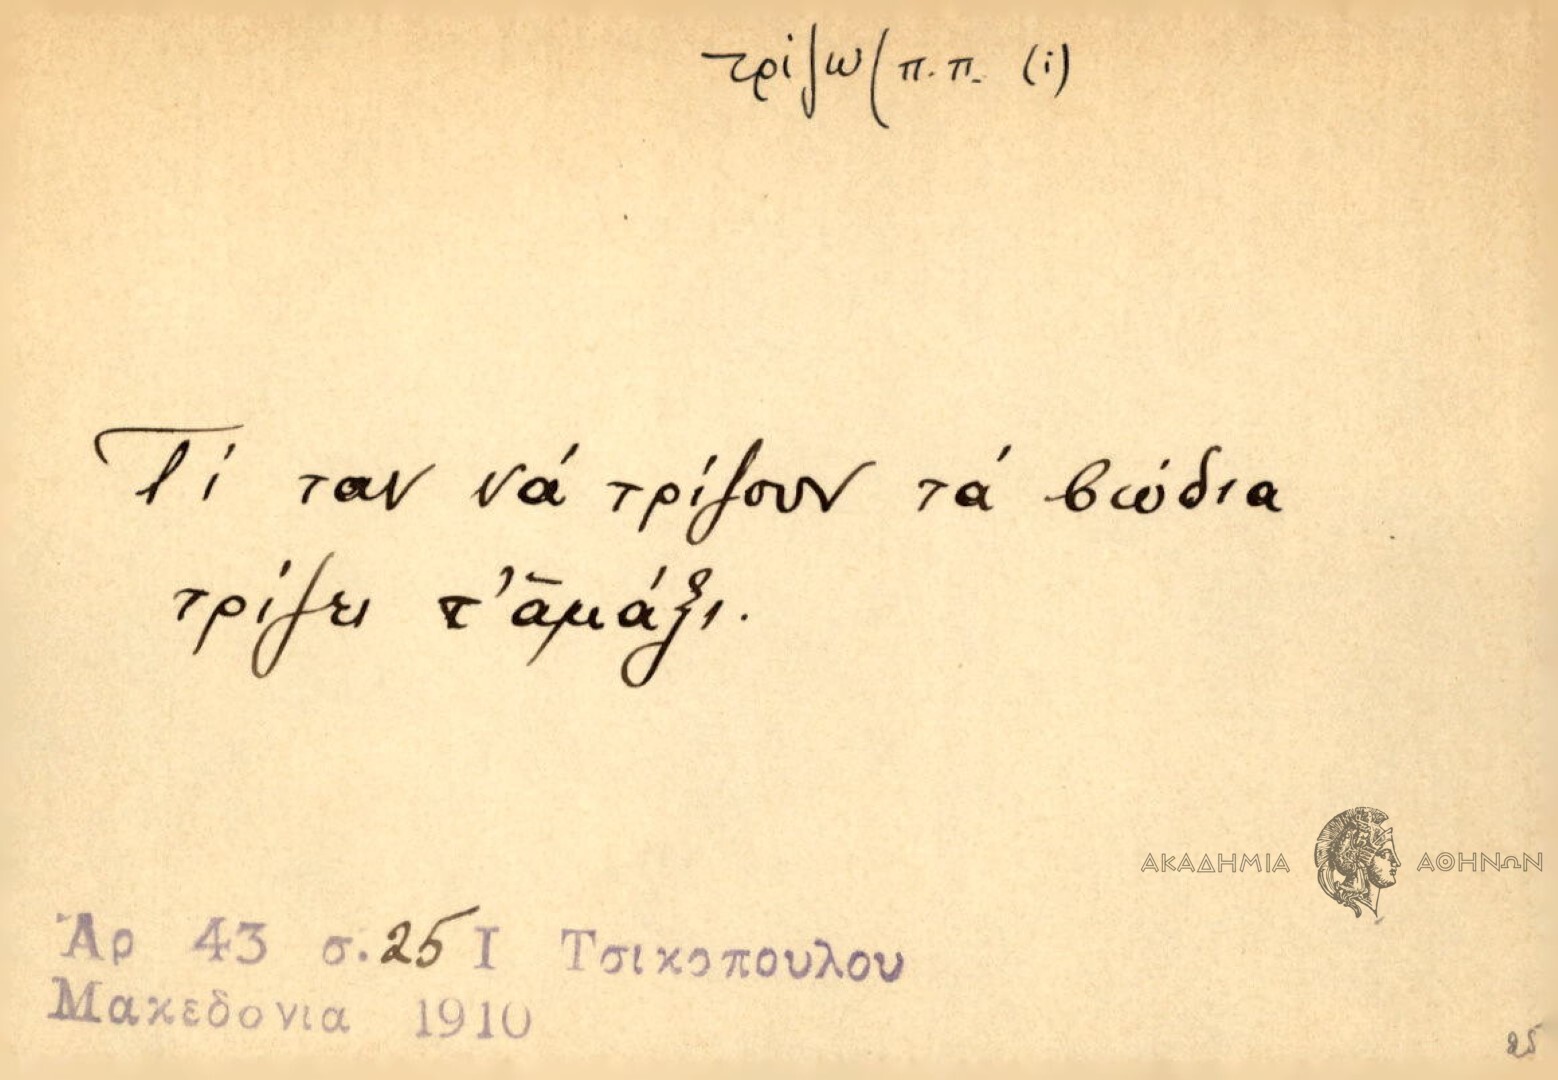 τρίζω (π.π. (i)
Τί ταν νά τρίζουν τά βώδια
τρίζει τ' ἀμάξι.
ΑΚΑΔΗΜΙΑ ΑΘΗΝΩΝ
Ἀρ 43 σ. 25 Ι Τσικοπουλου
Μακεδονια 1910
25